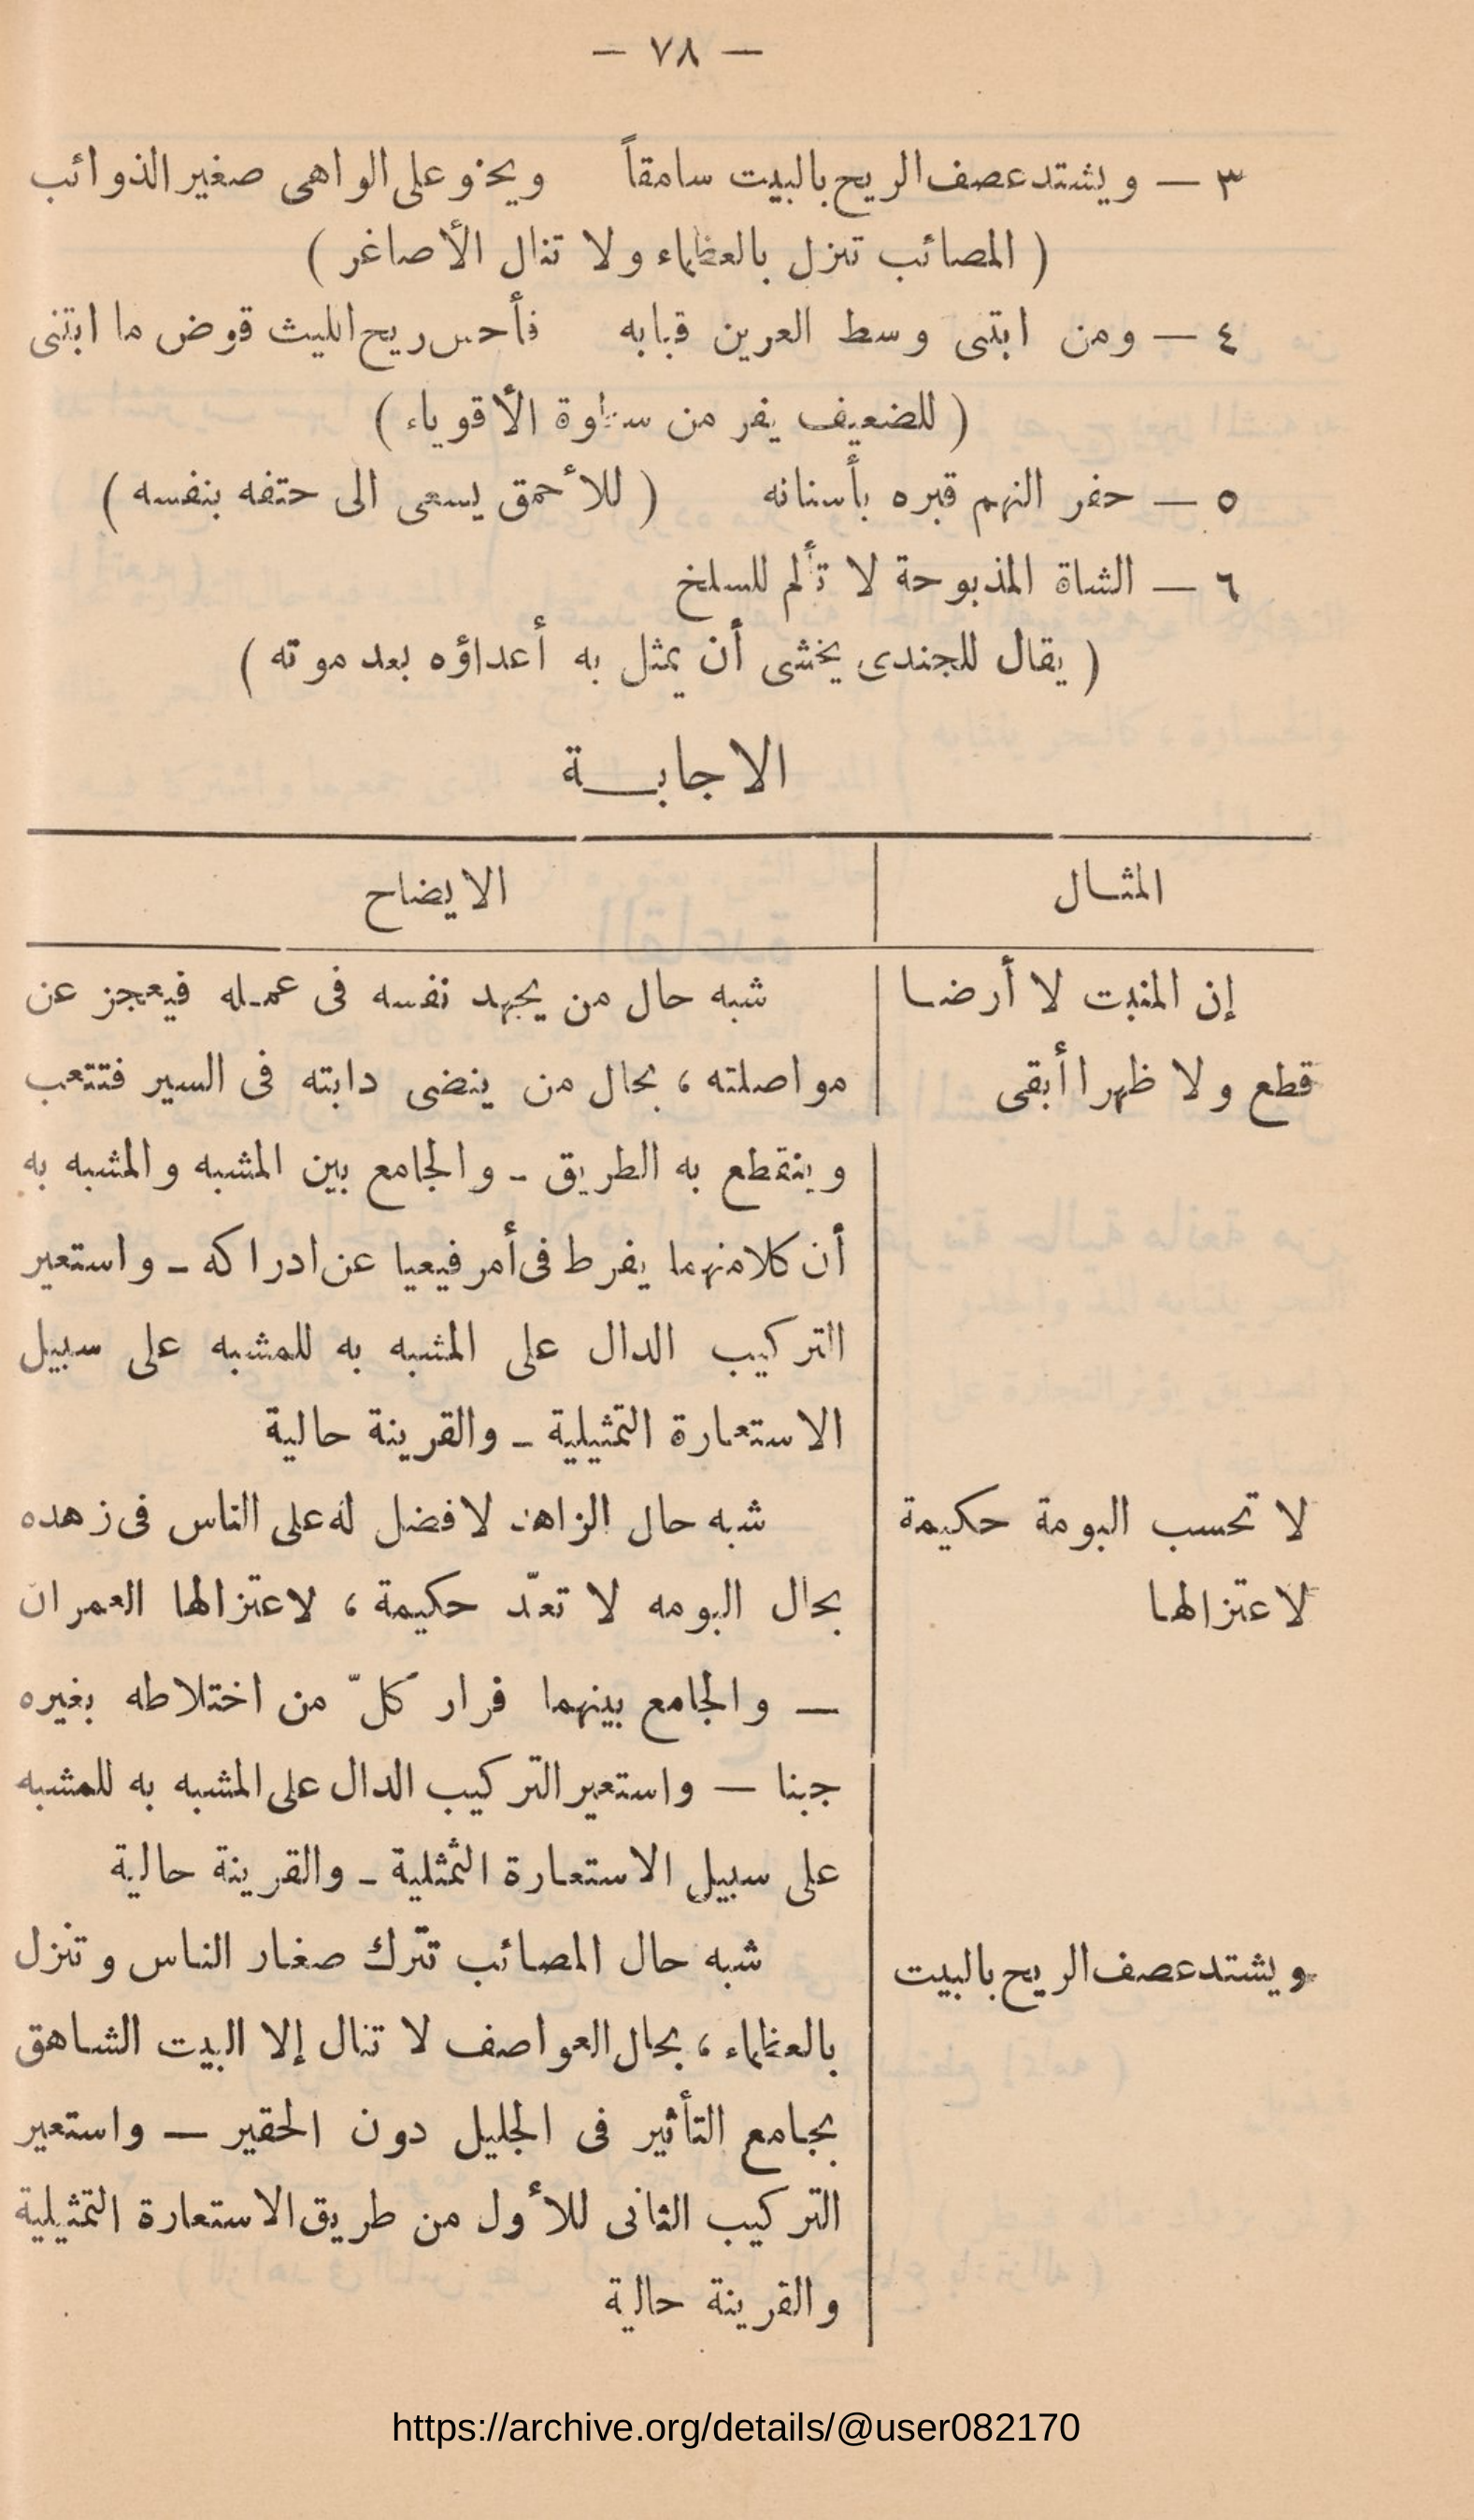 — ٧٨ —
٣ — ويشتد عصف الريح بالبيت سامقاً ويحنو على الواهى صغير الذوائب
( المصائب تنزل بالعظماء ولا تنال الأصاغر )
٤ — ومن ابتنى وسط العرين قبابه فأحس ريح الليث قوض ما ابتنى
( للضعيف يفر من سطوة الأقوياء )
٥ — حفر النهم قبره بأسنانه ( للأحمق يسعى الى حتفه بنفسه )
٦ — الشاة المذبوحة لا تألم للسلخ
( يقال للجندى يخشى أن يمثل به أعداؤه بعد موته )
الاجابـــة
المثــال
الايضاح
إن المنبت لا أرضــا
قطع ولا ظهرا أبقى
شبه حال من يجهد نفسه فى عمـله فيعجز عن
مواصلته ، بحال من ينضى دابته فى السير فتتعب
وينقطع به الطريق ـ والجامع بين المشبه والمشبه به
أن كلا منهما يفرط فى أمر فيعيا عن ادراكه ـ واستعير
التركيب الدال على المشبه به للمشبه على سبيل
الاستعارة التمثيلية ـ والقرينة حالية
لا تحسب البومة حكيمة
لاعتزالها
شبه حال الزاهد لا فضل له على الناس فى زهده
بحال البومه لا تعدّ حكيمة ، لاعتزالها العمران
— والجامع بينهما فرار كلّ من اختلاطه بغيره
جبنا — واستعير التركيب الدال على المشبه به للمشبه
على سبيل الاستعارة التمثلية ـ والقرينة حالية
ويشتد عصف الريح بالبيت
شبه حال المصائب تترك صغار الناس وتنزل
بالعظماء ، بحال العواصف لا تنال إلا البيت الشاهق
بجامع التأثير فى الجليل دون الحقير — واستعير
التركيب الثانى للأول من طريق الاستعارة التمثيلية
والقرينة حالية
https://archive.org/details/@user082170